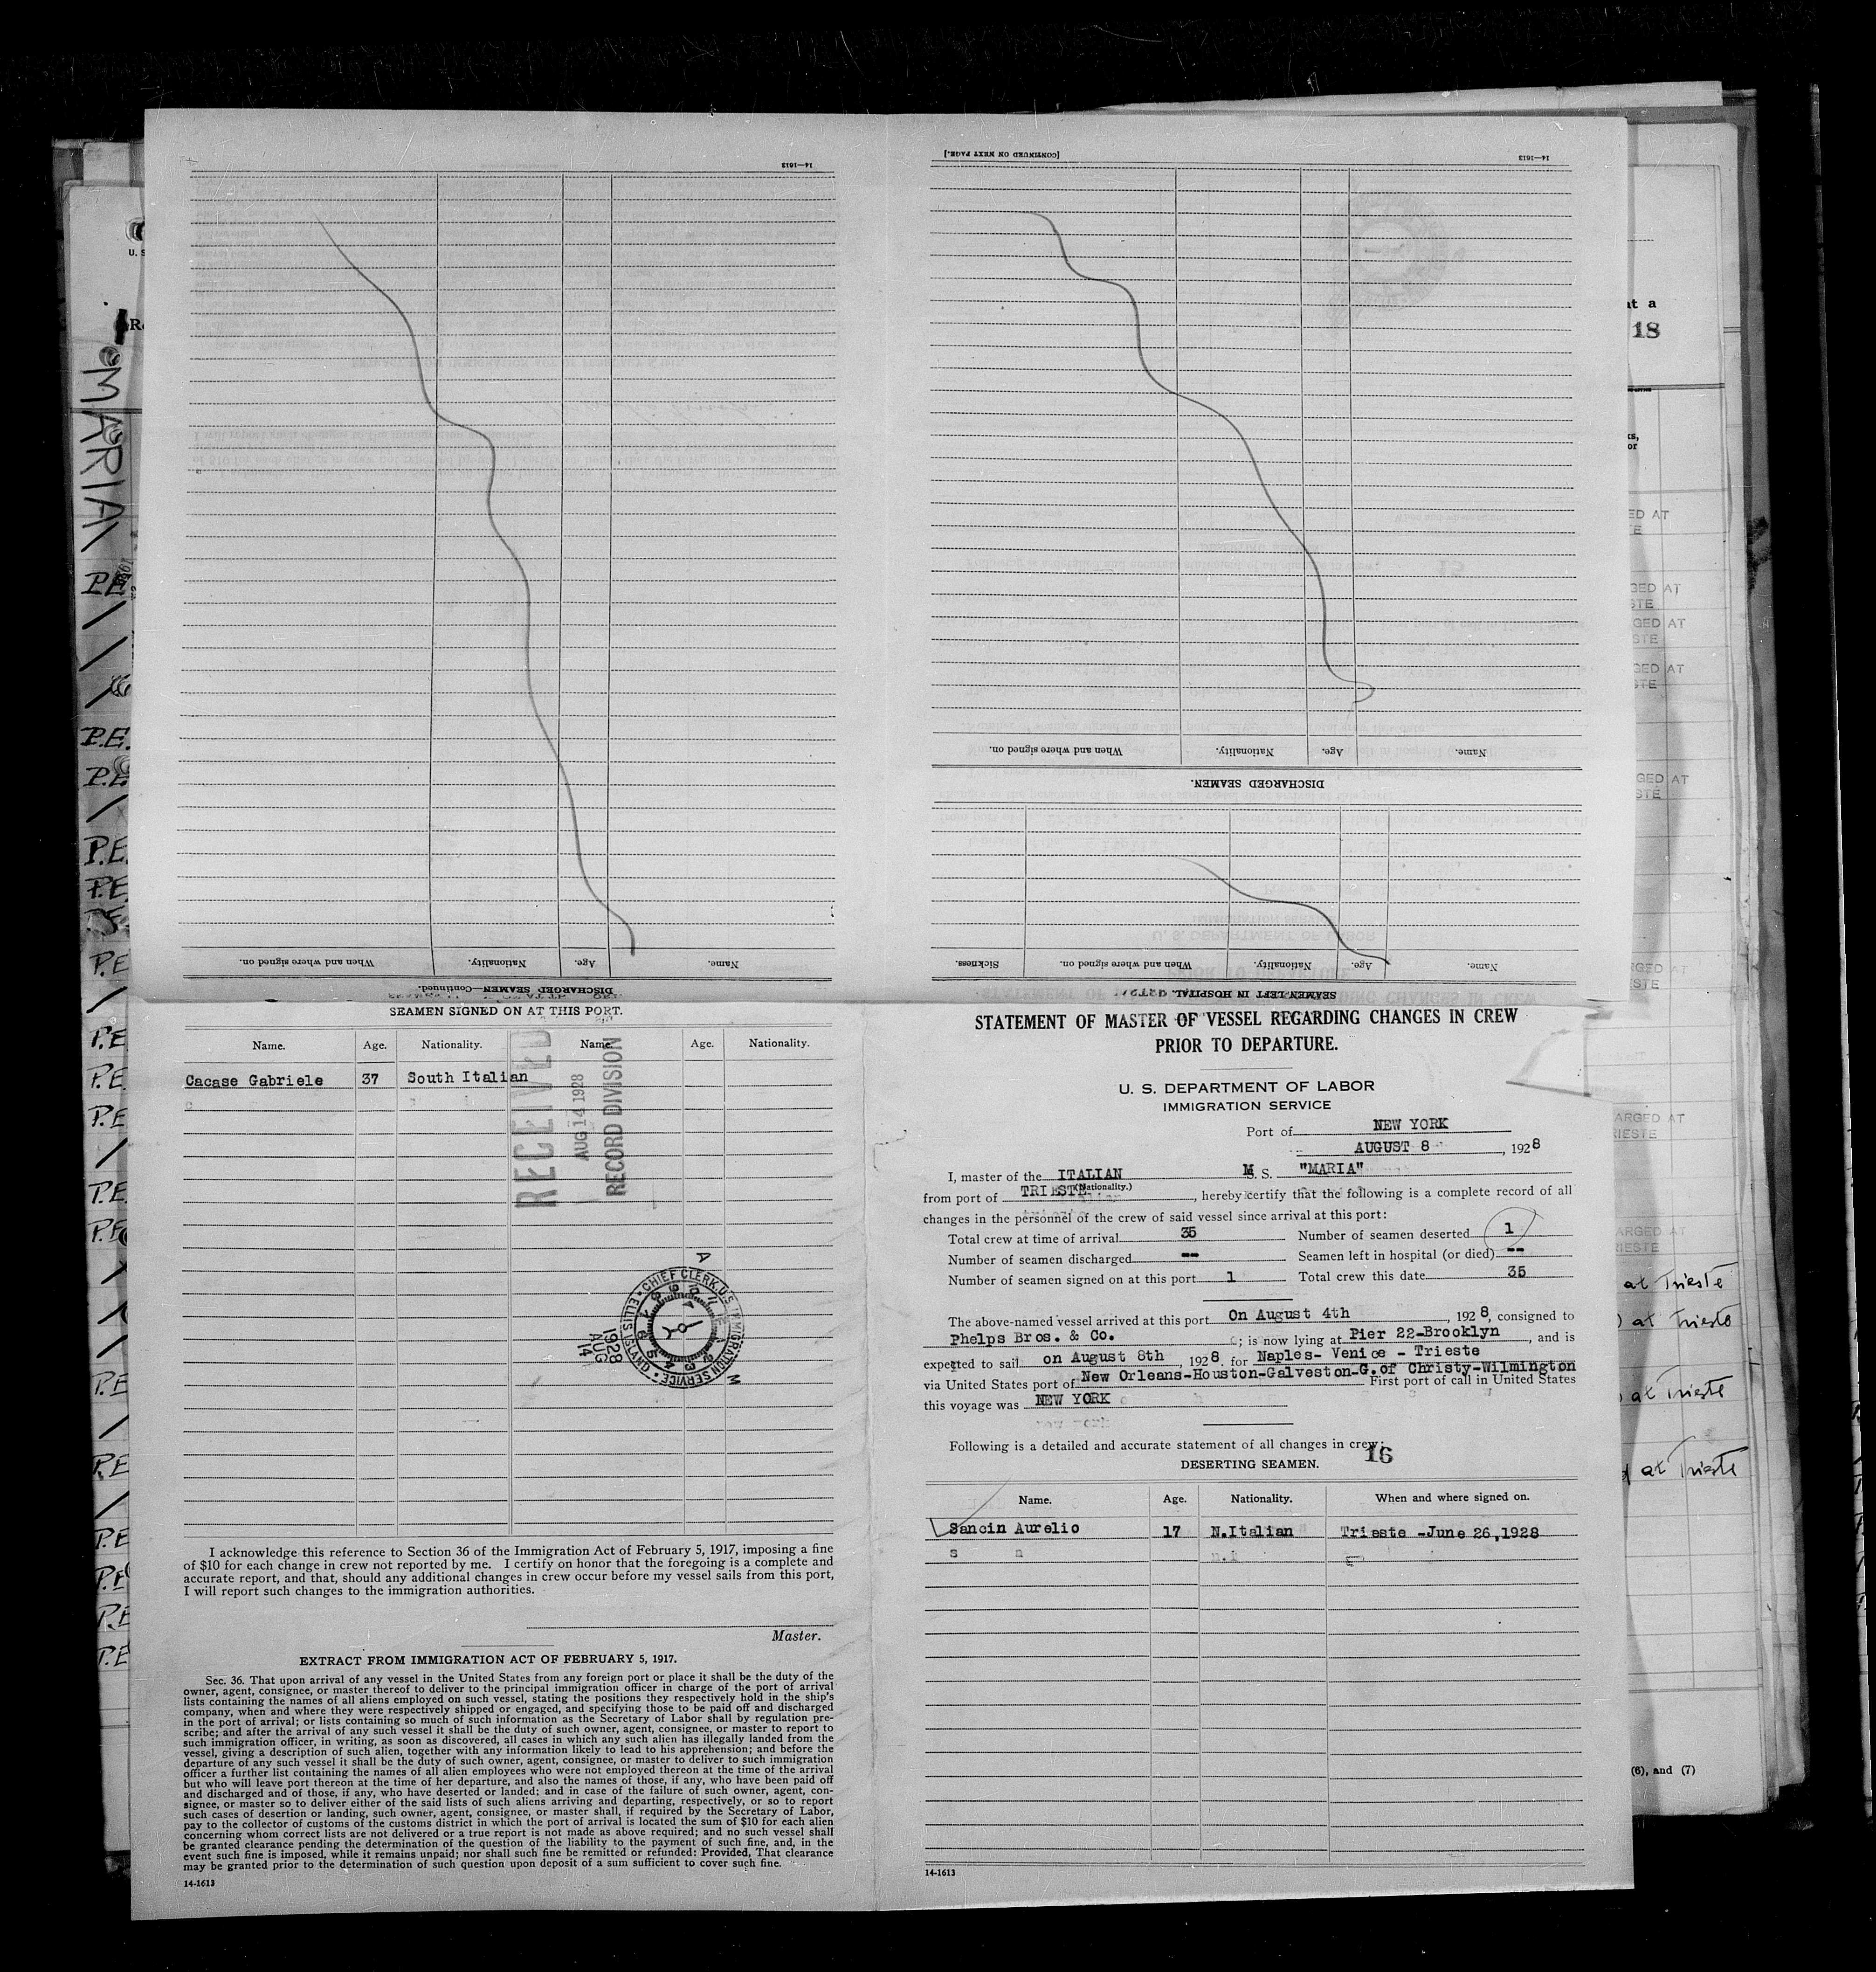 STATEMENT OF MASTER OF VESSEL REGARDING CHANGES IN CREW
PRIOR TO DEPARTURE.
U. S. DEPARTMENT OF LABOR
IMMIGRATION SERVICE
Port of NEW YORK
AUGUST 8, 1928
I, master of the ITALIAN M. S. "MARIA"
(Nationality.)
from port of TRIESTE, hereby certify that the following is a complete record of all
changes in the personnel of the crew of said vessel since arrival at this port:
Total crew at time of arrival 35 Number of seamen deserted 1
Number of seamen discharged -- Seamen left in hospital (or died) --
Number of seamen signed on at this port 1 Total crew this date 35
The above-named vessel arrived at this port On August 4th, 1928, consigned to
Phelps Bros. & Co.; is now lying at Pier 22-Brooklyn, and is
expected to sail on August 8th, 1928. for Naples- Venice - Trieste
via United States port of New Orleans-Houston-Galveston-G.of Christy-Wilmington First port of call in United States
this voyage was NEW YORK
Following is a detailed and accurate statement of all changes in crew:
16
DESERTING SEAMEN.
Name. Age. Nationality. When and where signed on.
Sancin Aurelio 17 N.Italian Trieste -June 26,1928
14-1613
SEAMEN LEFT IN HOSPITAL
Name. Age. Nationality. When and where signed on. Sickness.
DISCHARGED SEAMEN.
Name. Age. Nationality. When and where signed on.
14-1613
[CONTINUED ON NEXT PAGE.]
DISCHARGED SEAMEN—Continued.
Name. Age. Nationality. When and where signed on.
14-1613
SEAMEN SIGNED ON AT THIS PORT.
Name. Age. Nationality. Name. Age. Nationality.
Cacase Gabriele 37 South Italian
RECEIVED
AUG 14 1928
RECORD DIVISION
CHIEF CLERK, U.S. IMMIGRATION SERVICE
ELLIS ISLAND
A M
1928
AUG
14
I acknowledge this reference to Section 36 of the Immigration Act of February 5, 1917, imposing a fine
of $10 for each change in crew not reported by me. I certify on honor that the foregoing is a complete and
accurate report, and that, should any additional changes in crew occur before my vessel sails from this port,
I will report such changes to the immigration authorities.
Master.
EXTRACT FROM IMMIGRATION ACT OF FEBRUARY 5, 1917.
Sec. 36. That upon arrival of any vessel in the United States from any foreign port or place it shall be the duty of the
owner, agent, consignee, or master thereof to deliver to the principal immigration officer in charge of the port of arrival
lists containing the names of all aliens employed on such vessel, stating the positions they respectively hold in the ship's
company, when and where they were respectively shipped or engaged, and specifying those to be paid off and discharged
in the port of arrival; or lists containing so much of such information as the Secretary of Labor shall by regulation pre-
scribe; and after the arrival of any such vessel it shall be the duty of such owner, agent, consignee, or master to report to
such immigration officer, in writing, as soon as discovered, all cases in which any such alien has illegally landed from the
vessel, giving a description of such alien, together with any information likely to lead to his apprehension; and before the
departure of any such vessel it shall be the duty of such owner, agent, consignee, or master to deliver to such immigration
officer a further list containing the names of all alien employees who were not employed thereon at the time of the arrival
but who will leave port thereon at the time of her departure, and also the names of those, if any, who have been paid off
and discharged and of those, if any, who have deserted or landed; and in case of the failure of such owner, agent, con-
signee, or master so to deliver either of the said lists of such aliens arriving and departing, respectively, or so to report
such cases of desertion or landing, such owner, agent, consignee, or master shall, if required by the Secretary of Labor,
pay to the collector of customs of the customs district in which the port of arrival is located the sum of $10 for each alien
concerning whom correct lists are not delivered or a true report is not made as above required; and no such vessel shall
be granted clearance pending the determination of the question of the liability to the payment of such fine, and, in the
event such fine is imposed, while it remains unpaid; nor shall such fine be remitted or refunded: Provided, That clearance
may be granted prior to the determination of such question upon deposit of a sum sufficient to cover such fine.
14-1613
MARIA
P.E.
P.E.
P.E.
P.E
P.E
P.E
P.E
P.E
P.E
P.E
P.E
P.E
P.E
P.E
P.E
P.E
at a
18
at Trieste
at Trieste
at Trieste
at Trieste
(6), and (7)